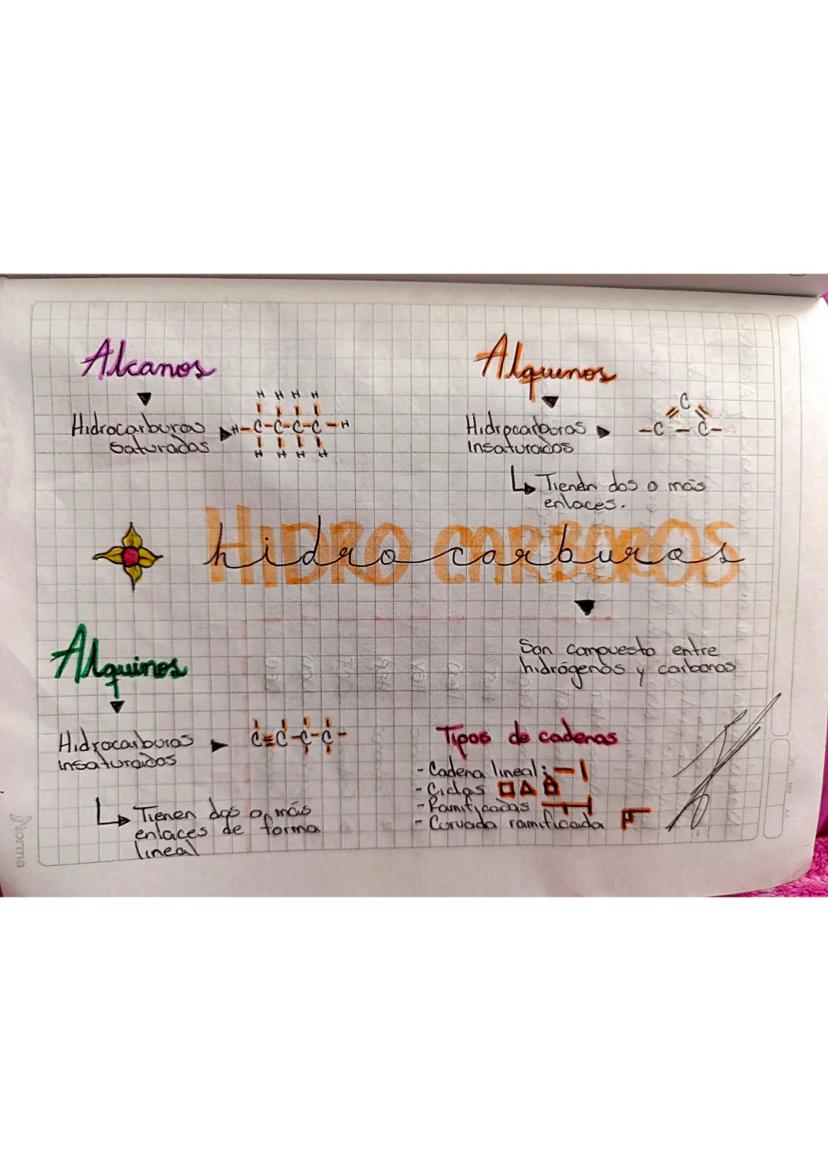 Alcanos
Hidrocarburos
saturados
H H H H
H-C-C-C-C-H
H H H H
Alquenos
Hidrocarburos
insaturados
C
-C - C-
Tienen dos o más
enlaces.
HIDROCARBUROS
hidrocarburos
Son compuesto entre
hidrógenos y carbonos
Alquinos
Hidrocarburos
insaturados
C≡C-C-C-
Tienen dos o más
enlaces de forma
lineal
Tipos de cadenas
- Cadena lineal:
- Ciclos
- Ramificadas
- Curvada ramificada
Norma